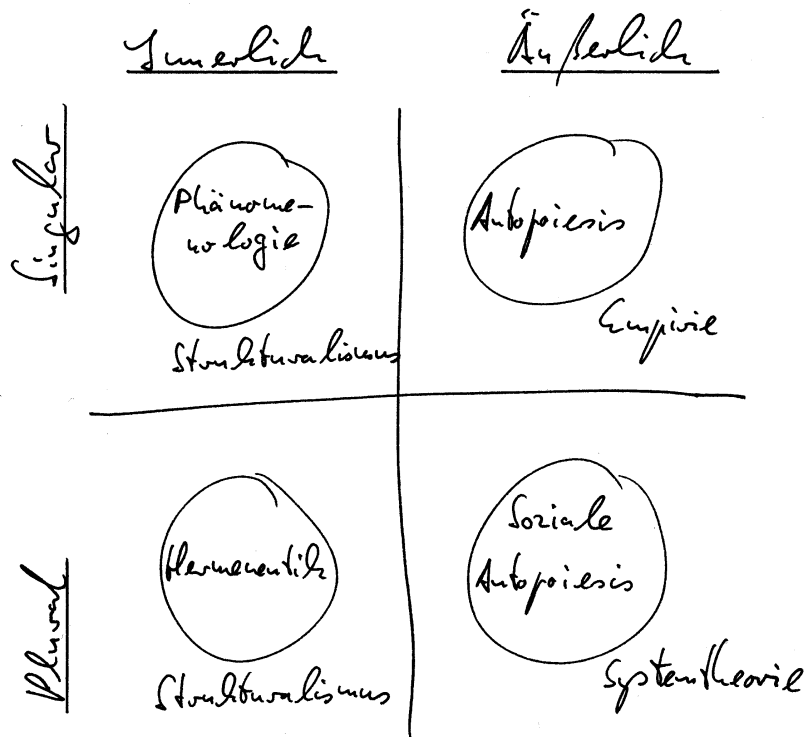 Innerlich
Äußerlich
Singular
Phänome-
nologie
Strukturalismus
Autopoiesis
Empirie
Plural
Hermeneutik
Strukturalismus
Soziale
Autopoiesis
Systemtheorie